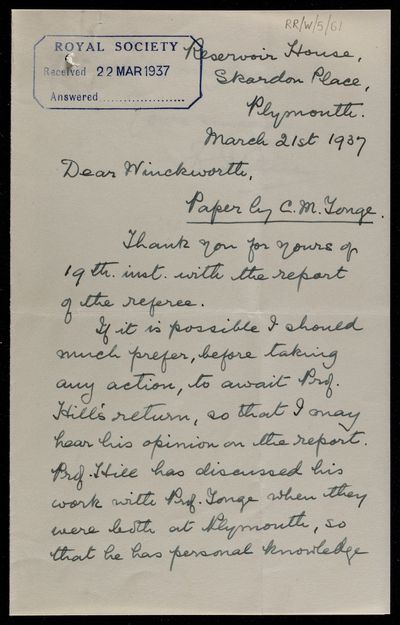 RR/W/5/61
ROYAL SOCIETY
Received 22 MAR 1937
Answered ....................
Reservoir House,
Skardon Place,
Plymouth.
March 21st 1937
Dear Winckworth,
Paper by C. M. Yonge.
Thank you for yours of
19th. inst. with the report
of the referee.
If it is possible I should
much prefer, before taking
any action, to await Prof.
Hill's return, so that I may
hear his opinion on the report.
Prof. Hill has discussed his
work with Prof. Yonge when they
were both at Plymouth, so
that he has personal knowledge